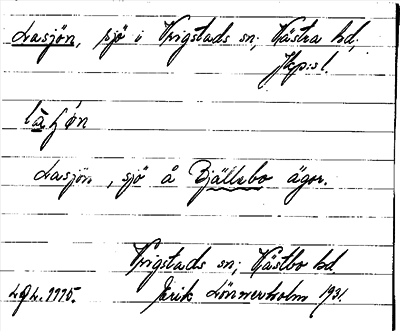 Lasjön, sjö i Vrigstads sn; Västra hd;
Jkp:s l.
Lasjön, sjö å Bjällebo ägor.
Vrigstads sn; Västbo hd
Lönnerholm 1931.